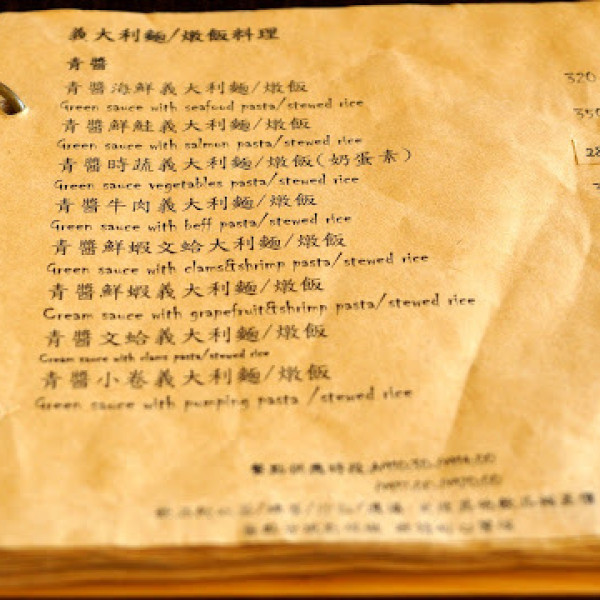 義大利麵/燉飯料理
青醬
青醬海鮮義大利麵/燉飯 320
Green sauce with seafood pasta/stewed rice
青醬鮮鮭義大利麵/燉飯 350
Green sauce with salmon pasta/stewed rice
青醬時蔬義大利麵/燉飯(奶蛋素) 28
Green sauce vegetables pasta/stewed rice
青醬牛肉義大利麵/燉飯
Green sauce with beff pasta/stewed rice
青醬鮮蝦文蛤大利麵/燉飯
Green sauce with clams&shrimp pasta/stewed rice
青醬鮮蝦義大利麵/燉飯
Cream sauce with grapefruit&shrimp pasta/stewed rice
青醬文蛤義大利麵/燉飯
Cream sauce with clams pasta/stewed rice
青醬小卷義大利麵/燉飯
Green sauce with pumping pasta /stewed rice
餐點供應時段